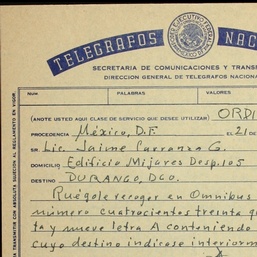 TELEGRAFOS NAC
PODER EJECUTIVO FEDERAL
SECRETARIA DE COMUNICACIONES Y TRANSP
DIRECCION GENERAL DE TELEGRAFOS NACIONA
NUM. PALABRAS VALORES
(ANOTE USTED AQUI CLASE DE SERVICIO QUE DESEE UTILIZAR) ORDI
PROCEDENCIA México, D.F. EL 21 D
SR. Lic. Jaime Carranza G.
DOMICILIO Edificio Mijares Desp. 105
DESTINO DURANGO, DGO.
Ruégole recoger en Omnibus
número cuatrocientos treinta y
ta y nueve letra A conteniendo
cuyo destino indícose interiorm
TRANSMITIR CON ABSOLUTA SUJECION AL REGLAMENTO EN VIGOR.